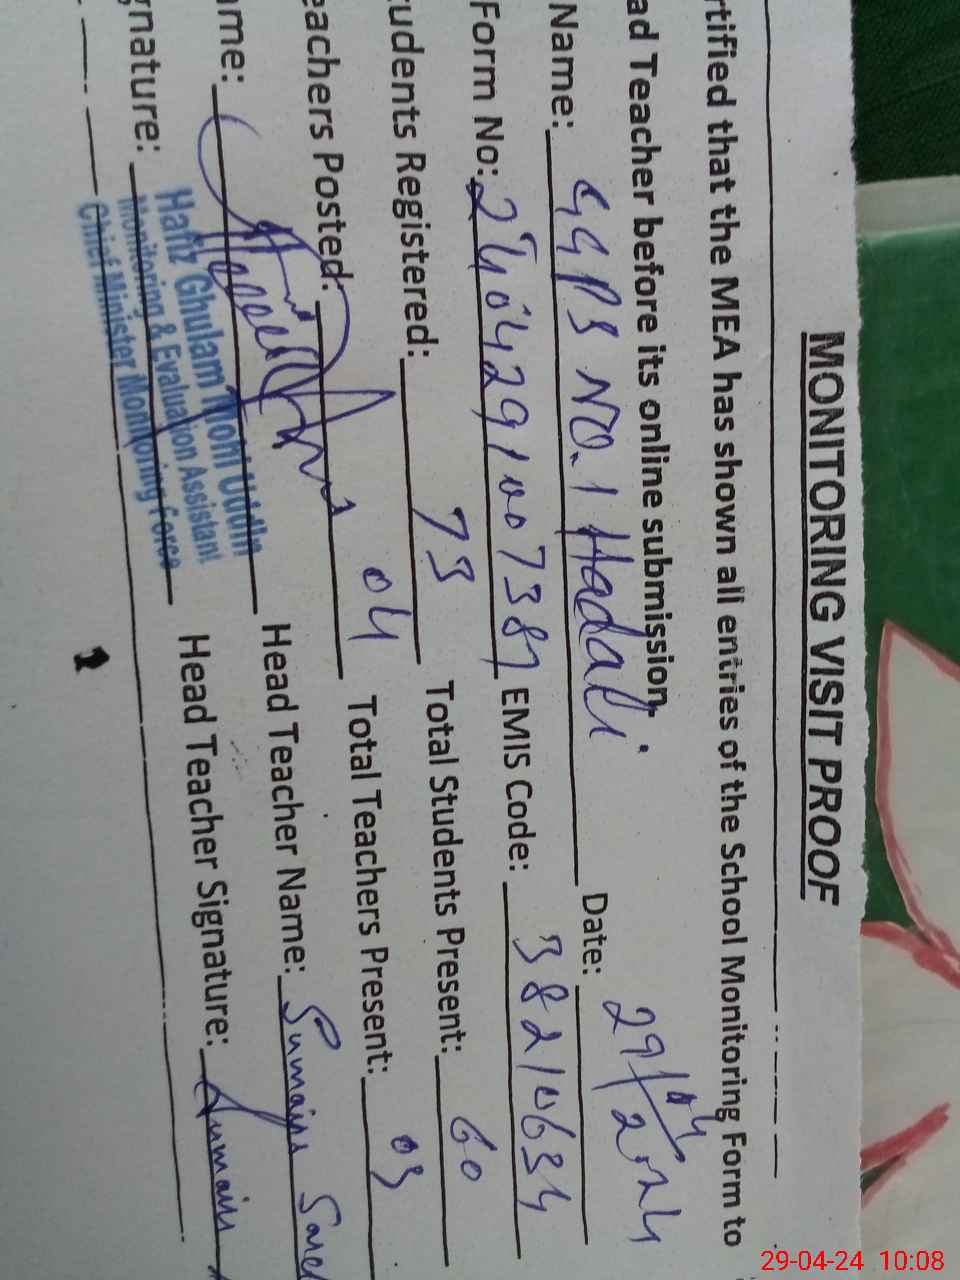 MONITORING VISIT PROOF
rtified that the MEA has shown all entries of the School Monitoring Form to
ad Teacher before its online submission.
Name: GGPS NO.1 Hadali Date: 29/04/2024
Form No: EMIS Code: 38210634
tudents Registered: 73 Total Students Present: 60
eachers Posted: 04 Total Teachers Present: 03
ame: Head Teacher Name: Sumaira
gnature: Head Teacher Signature: Sumaira
Hafiz Ghulam Mohi Uddin
Monitoring & Evaluation Assistant
Chief Minister Monitoring Force
29-04-24 10:08